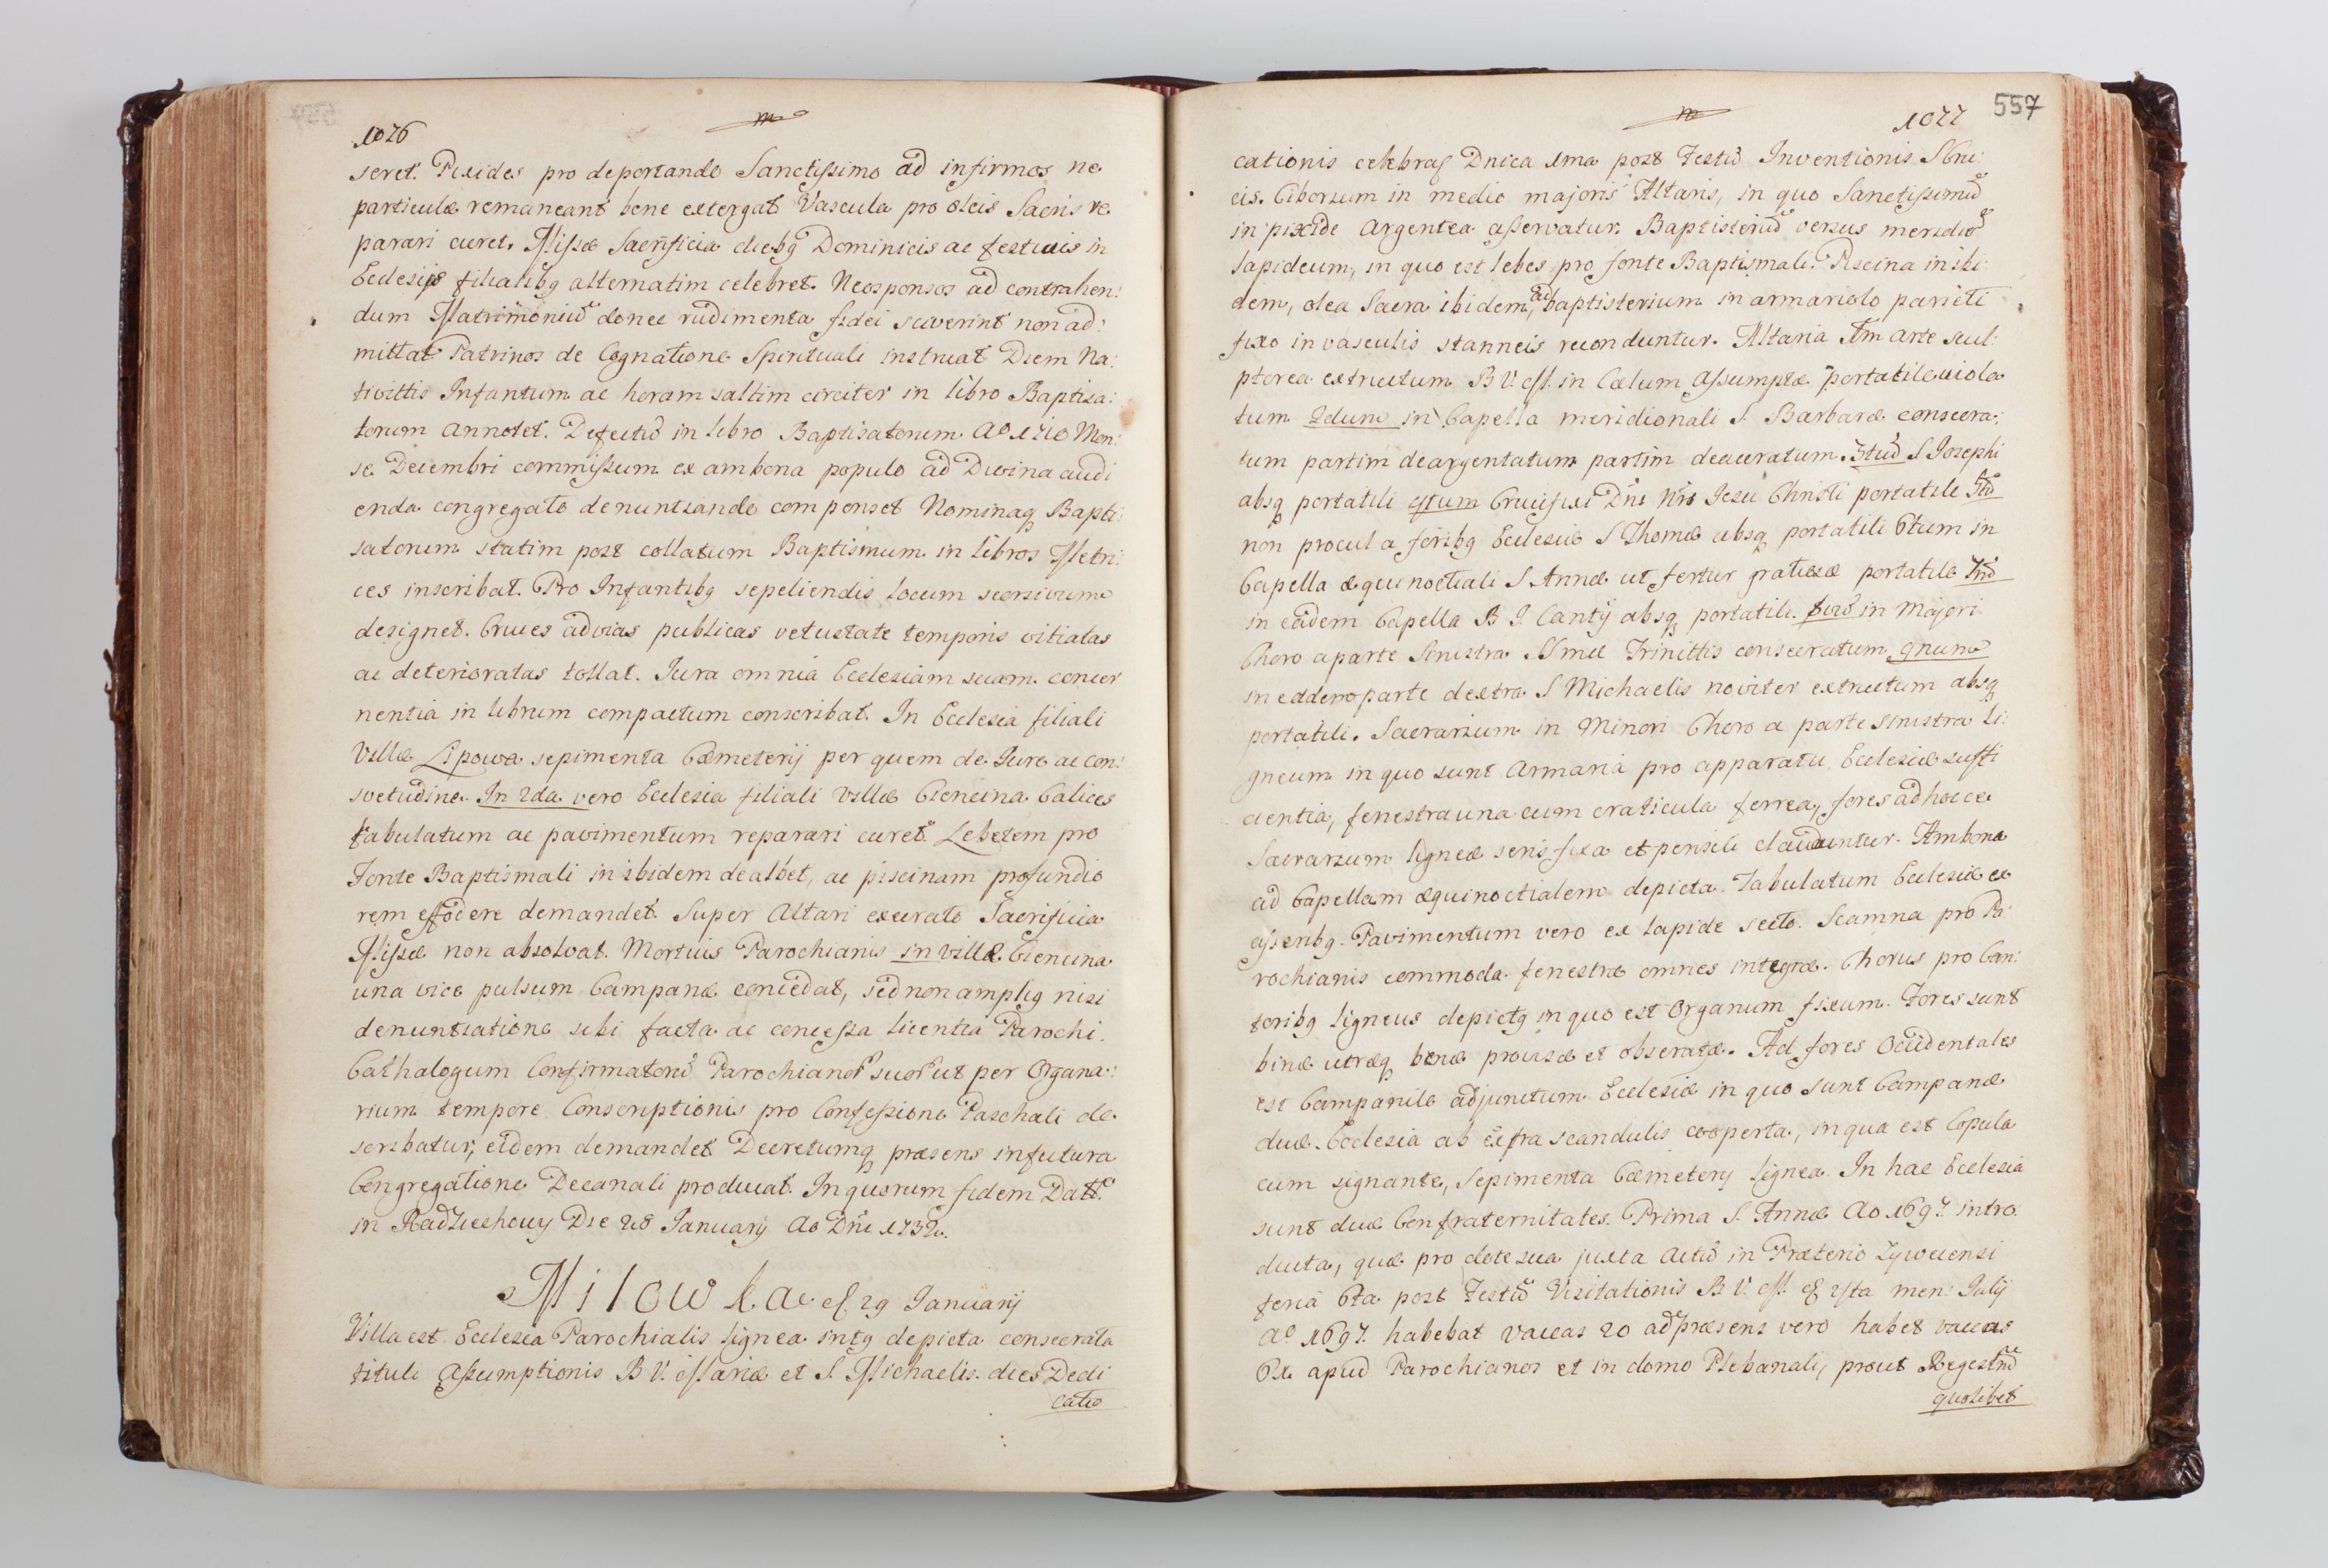 1076
m
seret. Pixides pro deportando Sanctissimo ad infirmos ne
particulæ remaneant bene extergat Vascula pro oleis Sacris re
parari curet. Missæ Sacrificia diebq Dominicis ac festiuis in
Ecclesijs filialibq alternatim celebret. Neosponsos ad contrahen:
dum Matrimoniũ donec rudimenta fidei sciverint non ad:
mittat Patrinos de Cognatione Spirituali instruat Diem Na:
tivittis Infantum ac horam saltim circiter in libro Baptisa:
torum annotet. Defectũ in libro Baptisatorum Aº 1710 Men:
se Decembri commissum ex ambona populo ad Divina audi
enda congregato denuntiando compenset Nominaq Bapti:
satorum statim post collatum Baptismum in libros Metri:
ces inscribat. Pro Infantibq sepeliendis locum seorsivum
designet. Cruces ad vias publicas vetustate temporis vitiatas
ac deterioratas tollat. Jura omnia Ecclesiam suam concer
nentia in librum compactum conscribat. In Ecclesia filiali
Villæ Lipowa sepimenta Cæmeterij per quem de Jure ac con:
svetudine. In 2da vero Ecclesia filiali Villæ Ciencina Calices
tabulatum ac pavimentum reparari curet. Lebetem pro
Fonte Baptismali in ibidem dealbet, ac piscinam profundio
rem effodere demandet. Super Altari execrato Sacrificia
Missæ non absolvat. Mortuis Parochianis in villa Ciencina
una vice pulsum Campanæ concedat, sed non ampliq nisi
denuntiatione sibi facta ac concessa licentia Parochi.
Cathalogum Confirmatorũ Parochianor suor ut per Organa:
rium tempore Conscriptionis pro Confessione Paschali de
scribatur, eidem demandet Decretumq præsens in futura
Congregatione Decanali producat. In quorum fidem Datt.
in Radziechouy Die 28 Januarij Ao Dñi 1732.
Milowka 29 Januarij
Villa est Ecclesia Parochialis lignea intq depicta consecrata
tituli Assumptionis B V. Mariæ et S. Michaelis. dies Dedi
catio
m
1077 557
cationis celebraꝭ Dnica 1ma post Festũ Inventionis S Cru:
cis. Ciborium in medio majoris Altaris, in quo Sanctissimũ
in pixide argentea asservatur. Baptisteriũ versus meridiẽ
lapideum, in quo est lebes pro fonte Baptismali. Piscina in ibi
dem, olea Sacra ibidem, ad baptisterium in armariolo parieti
fixo in vasculis stanneis reconduntur. Altaria 1m arte scul:
ptorea extructum B V. M. in Cælum Assumptæ portatile viola
tum 2dum in Capella meridionali S. Barbaræ consecra:
tum partim deargentatum partim deauratum. 3tiũ S Josephi
absq portatili 4tum Crucifixi Dñi Nri Jesu Christi portatile 5tũ
non procul a foribq Ecclesiæ S Thomæ absq portatili 6tum in
Capella æquinoctiali S Annæ ut fertur gratiosæ portatile 7mũ
in eadem Capella B J. Cantij absq portatili. 8vũ in Majori
Choro a parte Sinistra SSmæ Trinittis consecratum 9num
in eadem parte dextra S Michaelis noviter extructum absq
portatili. Sacrarium in Minori Choro a parte sinistra li:
gneum in quo sunt armaria pro apparatu Ecclesiæ suffi
cientia, fenestra una cum craticula ferrea, fores ad hocce
Sacrarium ligneæ seris fixa et pensili clauduntur. Ambona
ad Capellam æquinoctialem depicta. Tabulatum Ecclesiæ ex
assenbq. Pavimentum vero ex lapide secto. Scamna pro Pa:
rochianis commoda. fenestræ omnes integræ. Chorus pro Can:
toribq ligneus depictq in quo est Organum fixum. Fores sunt
binæ utræq bene provisæ et obseratæ. Ad fores Occidentales
est Campanile adjunctum Ecclesiæ in quo sunt Campanæ
duæ. Ecclesia ab extra scandulis cooperta, in qua est Copula
cum signante, Sepimenta Cæmeterij lignea. In hac Ecclesia
sunt duæ Confraternitates. Prima S. Annæ Ao 1697. intro:
ducta, quæ pro dote sua juxta actũ in Prætorio Zywecensi
feria 6ta post Festũ Visitationis B V. M. men: Julij
Aº 1697. habebat vaccas 20 ad præsens vero habet vaccas
61. apud Parochianos et in domo Plebanali, prout Regestrũ
quolibet